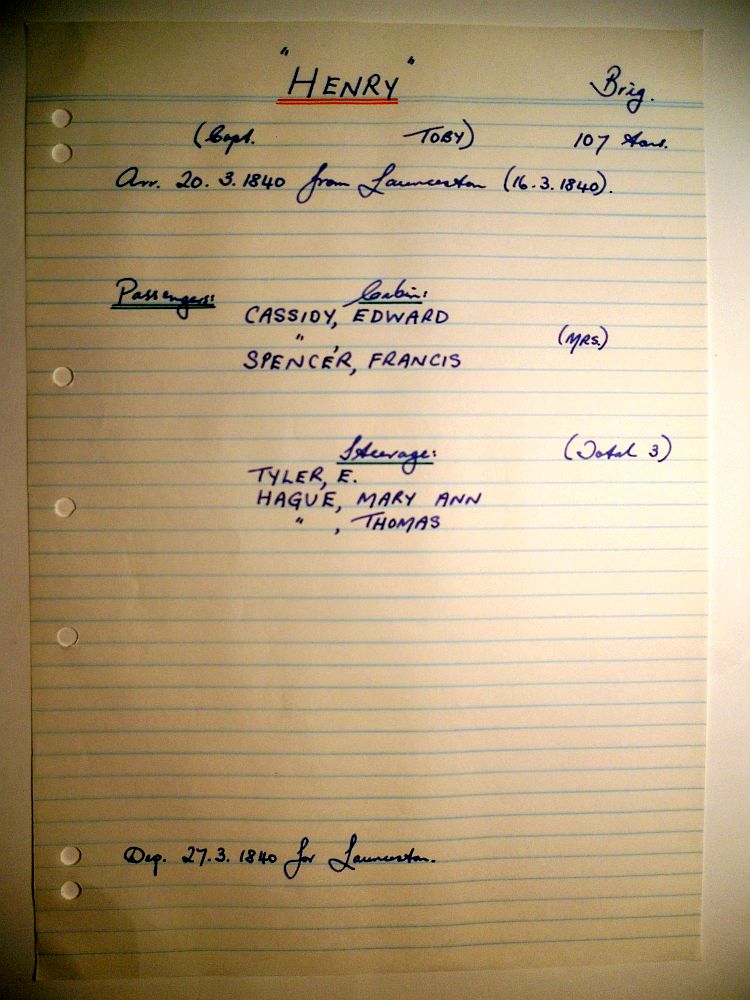 "HENRY" Brig.
(Capt. TOBY) 107 tons.
Arr. 20.3.1840 from Launceston (16.3.1840).
Passengers: Cabin:
CASSIDY, EDWARD
" , (MRS.)
SPENCER, FRANCIS
Steerage: (Total 3)
TYLER, E.
HAGUE, MARY ANN
" , THOMAS
Dep. 27.3.1840 for Launceston.